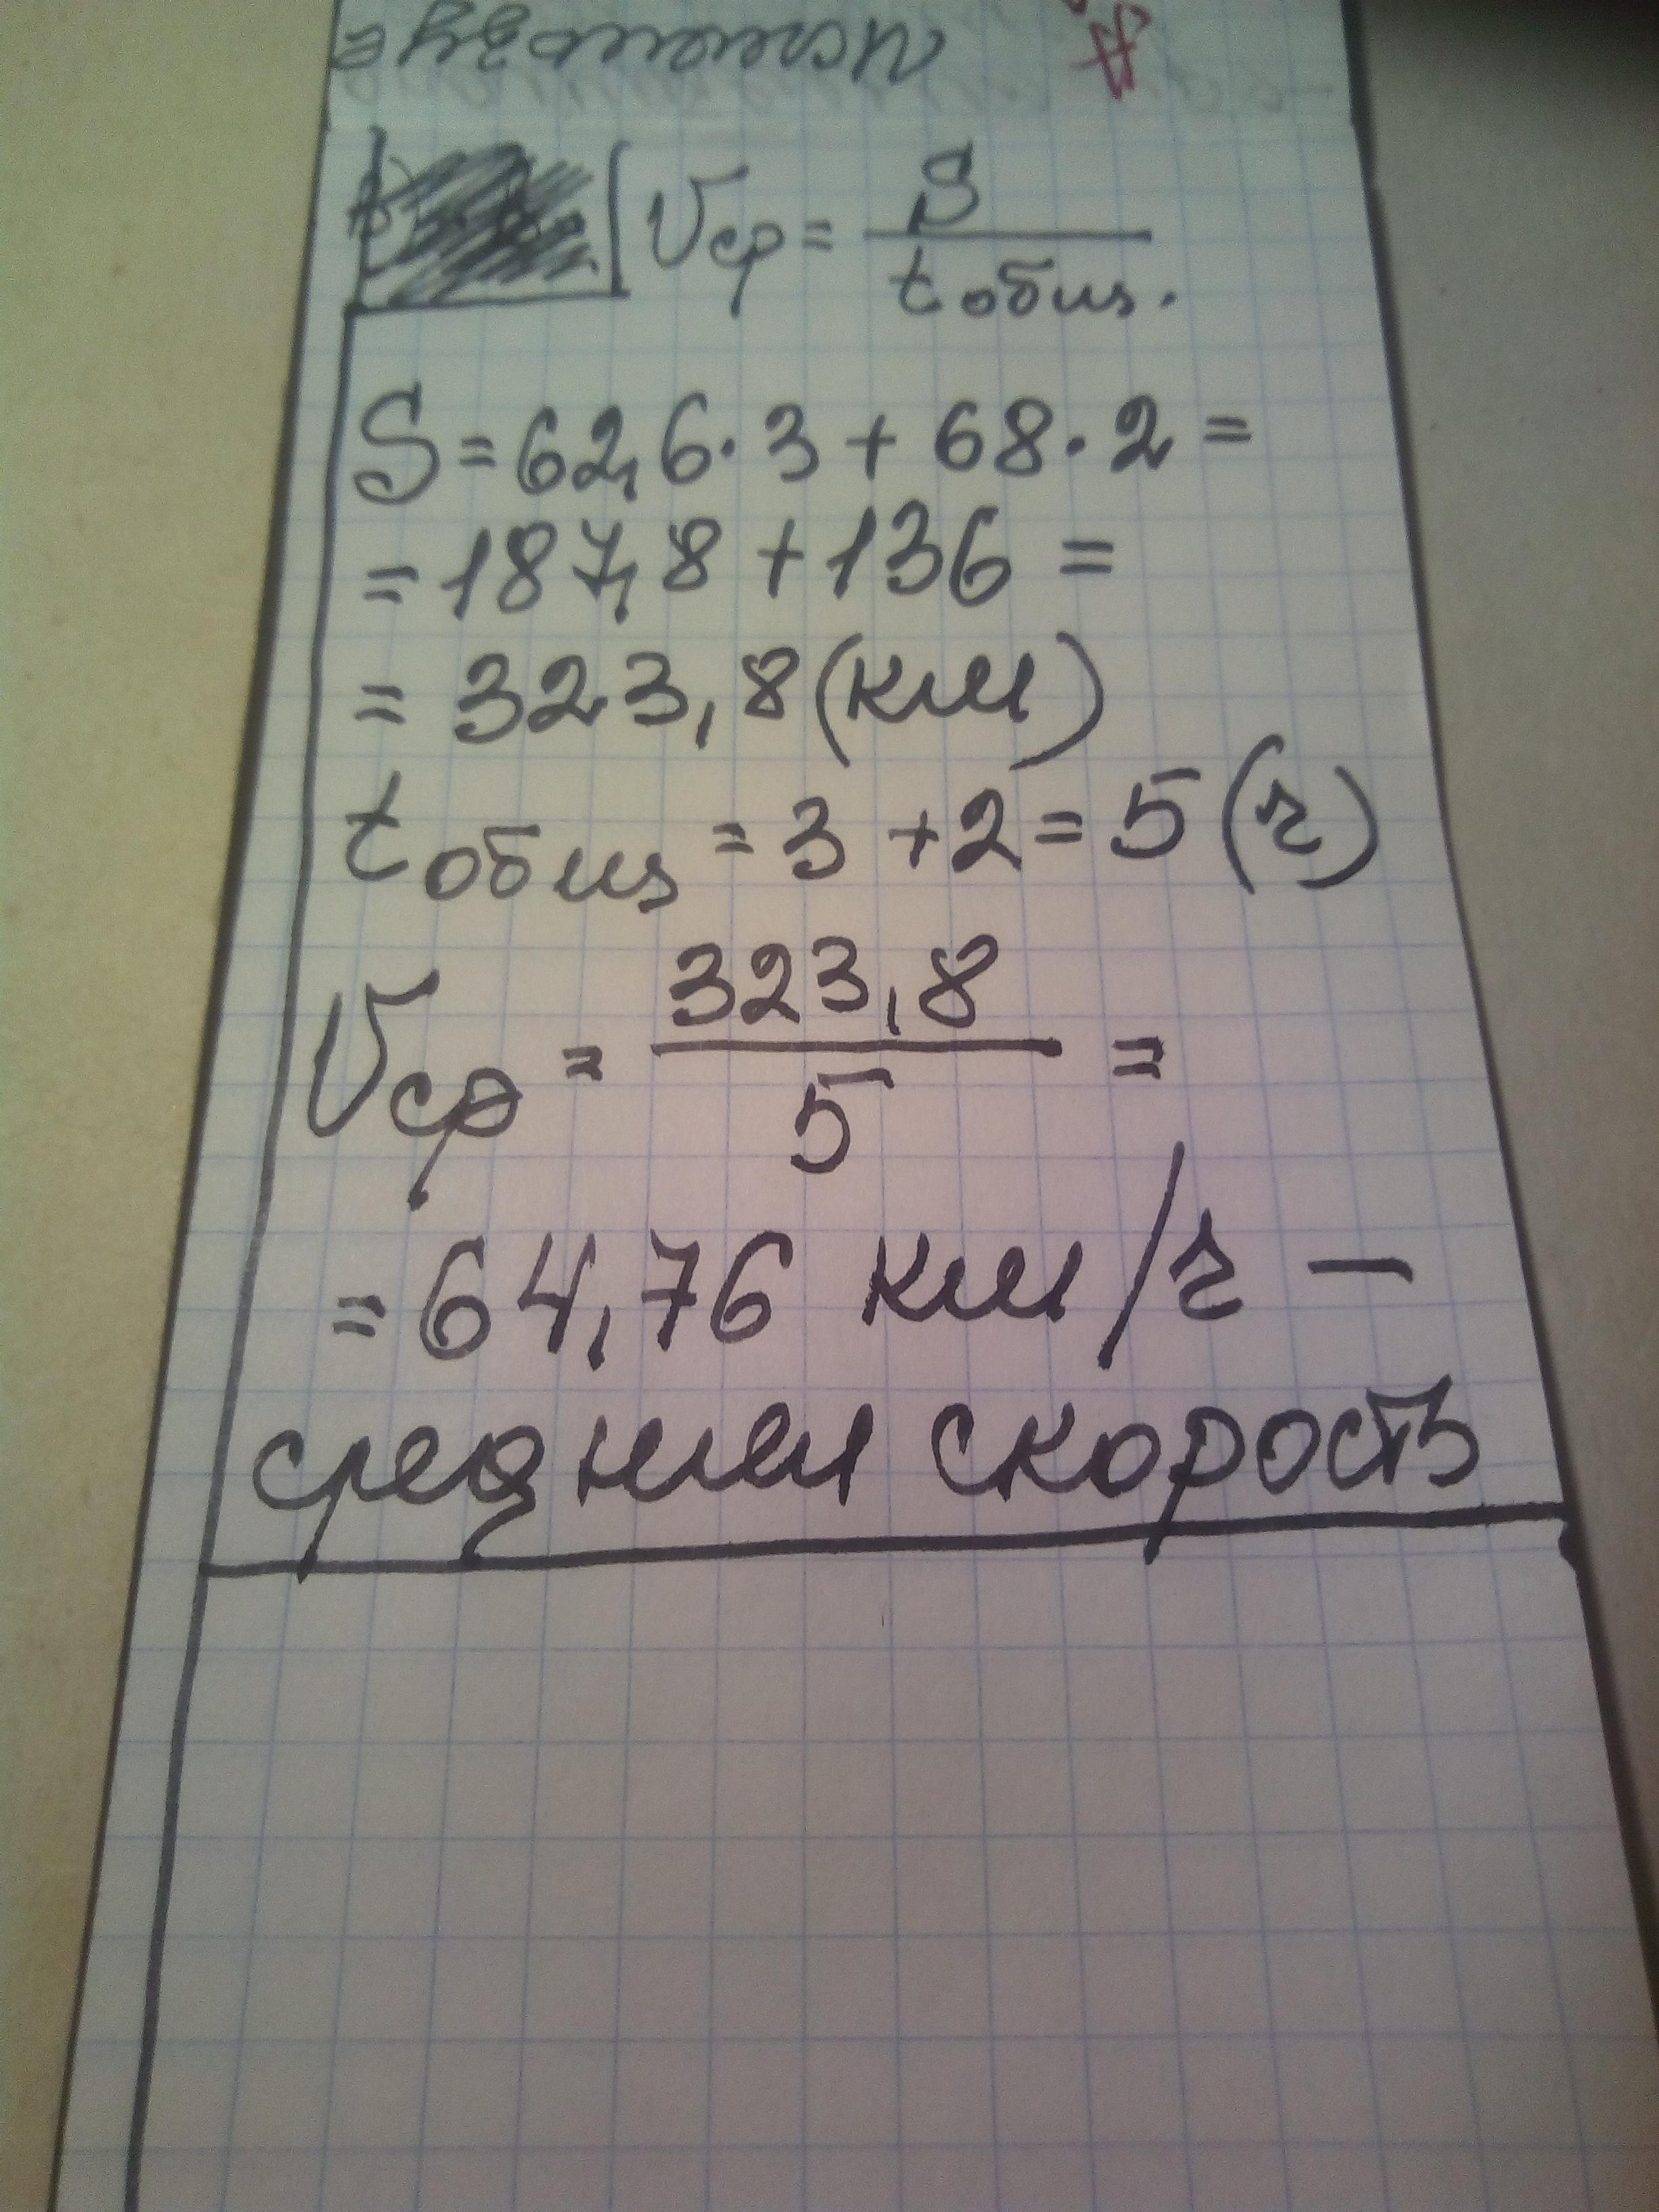 Vср = S / tобщ.
S = 62,6 · 3 + 68 · 2 =
= 187,8 + 136 =
= 323,8 (км)
tобщ = 3 + 2 = 5 (ч)
Vср = 323,8 / 5 =
= 64,76 км/ч —
средняя скорость